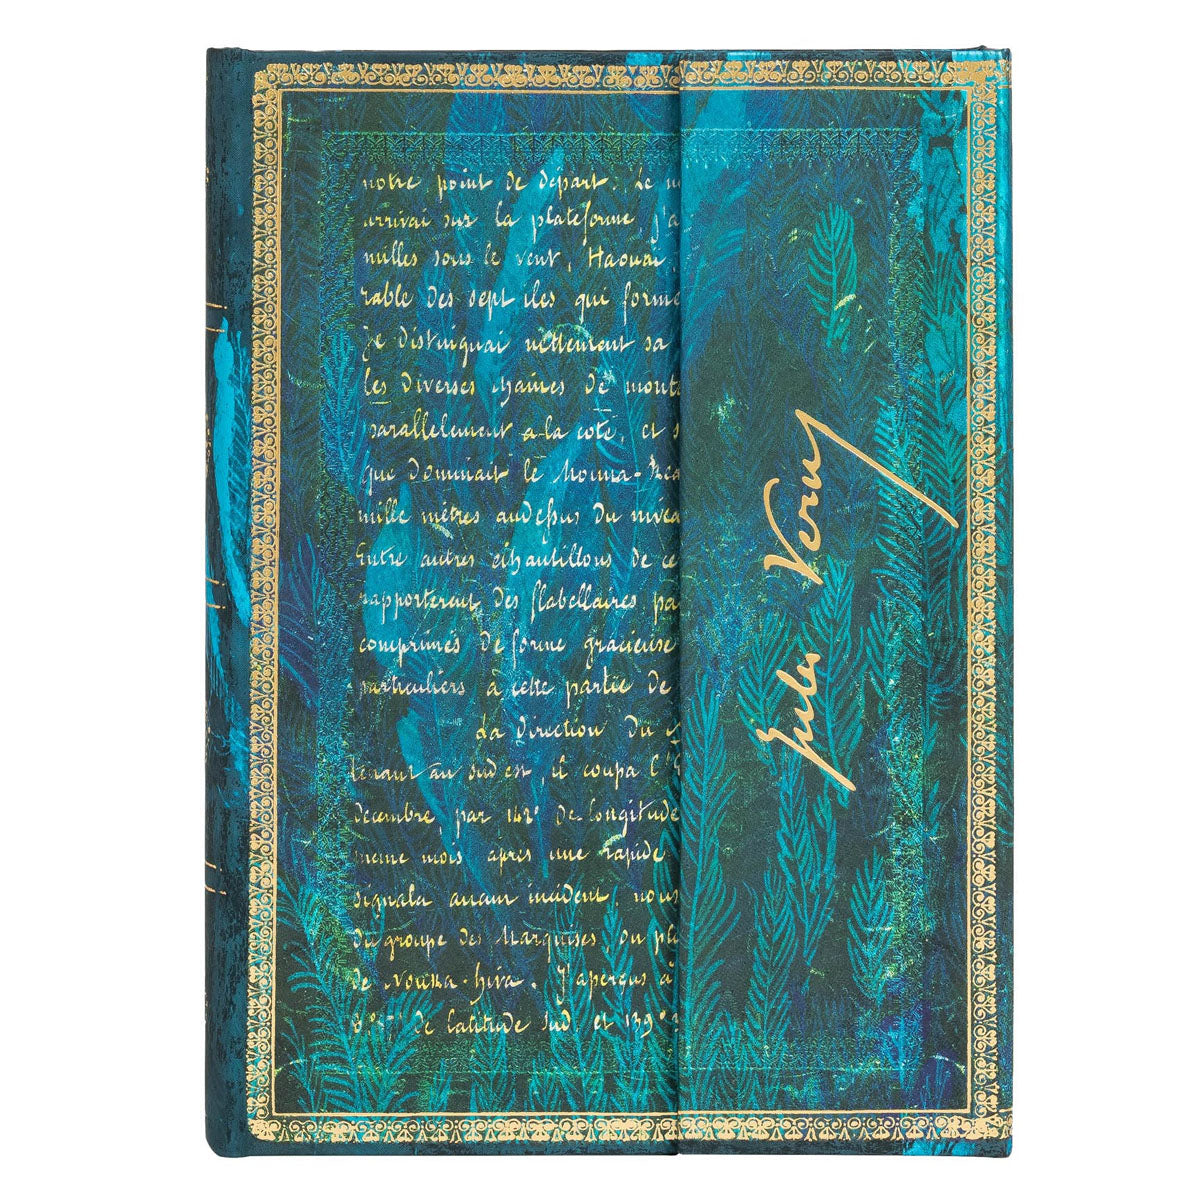 notre point de départ. Le
arrivai sur la plateforme, j'a
milles sous le vent, Haouai,
rable des sept iles qui forme
Je distinguai nettement sa
les diverses chaines de mont
parallelement a la cote, et s
que dominait le Mouna-
mille mètres audessus du nivea
Entre autres échantillons de ce
rapporterent des flabellaires, pa
comprimés de forme gracieuse
particuliers à cette partie de
La direction du
tenant au sud est, il coupa l'
décembre, par 142° de longitude
meme mois après une rapide
signala aucun incident. nous
du groupe des Marquises, ou pl
de Nouka-hiva. J'aperçus à
de latitude sud, et 139°
Jules Verne